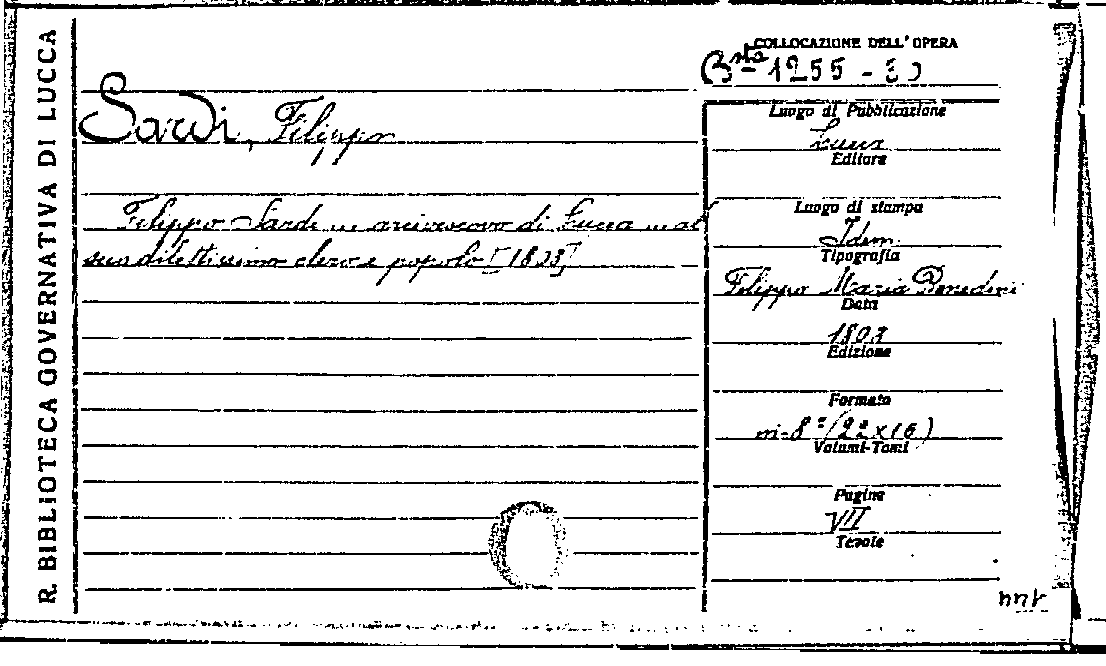 R. BIBLIOTECA GOVERNATIVA DI LUCCA
COLLOCAZIONE DELL'OPERA
Bta 1255 -
Sardi, Filippo
Filippo Sardi ... arcivescovo di Lucca ... al
suo dilettissimo clero e popolo
Luogo di Pubblicazione
Lucca
Editore
Luogo di stampa
Idem.
Tipografia
Filippo Maria Benedini
Data
Edizione
Formato
in-8° (22x16)
Volumi-Tomi
Pagine
VII
Tavole